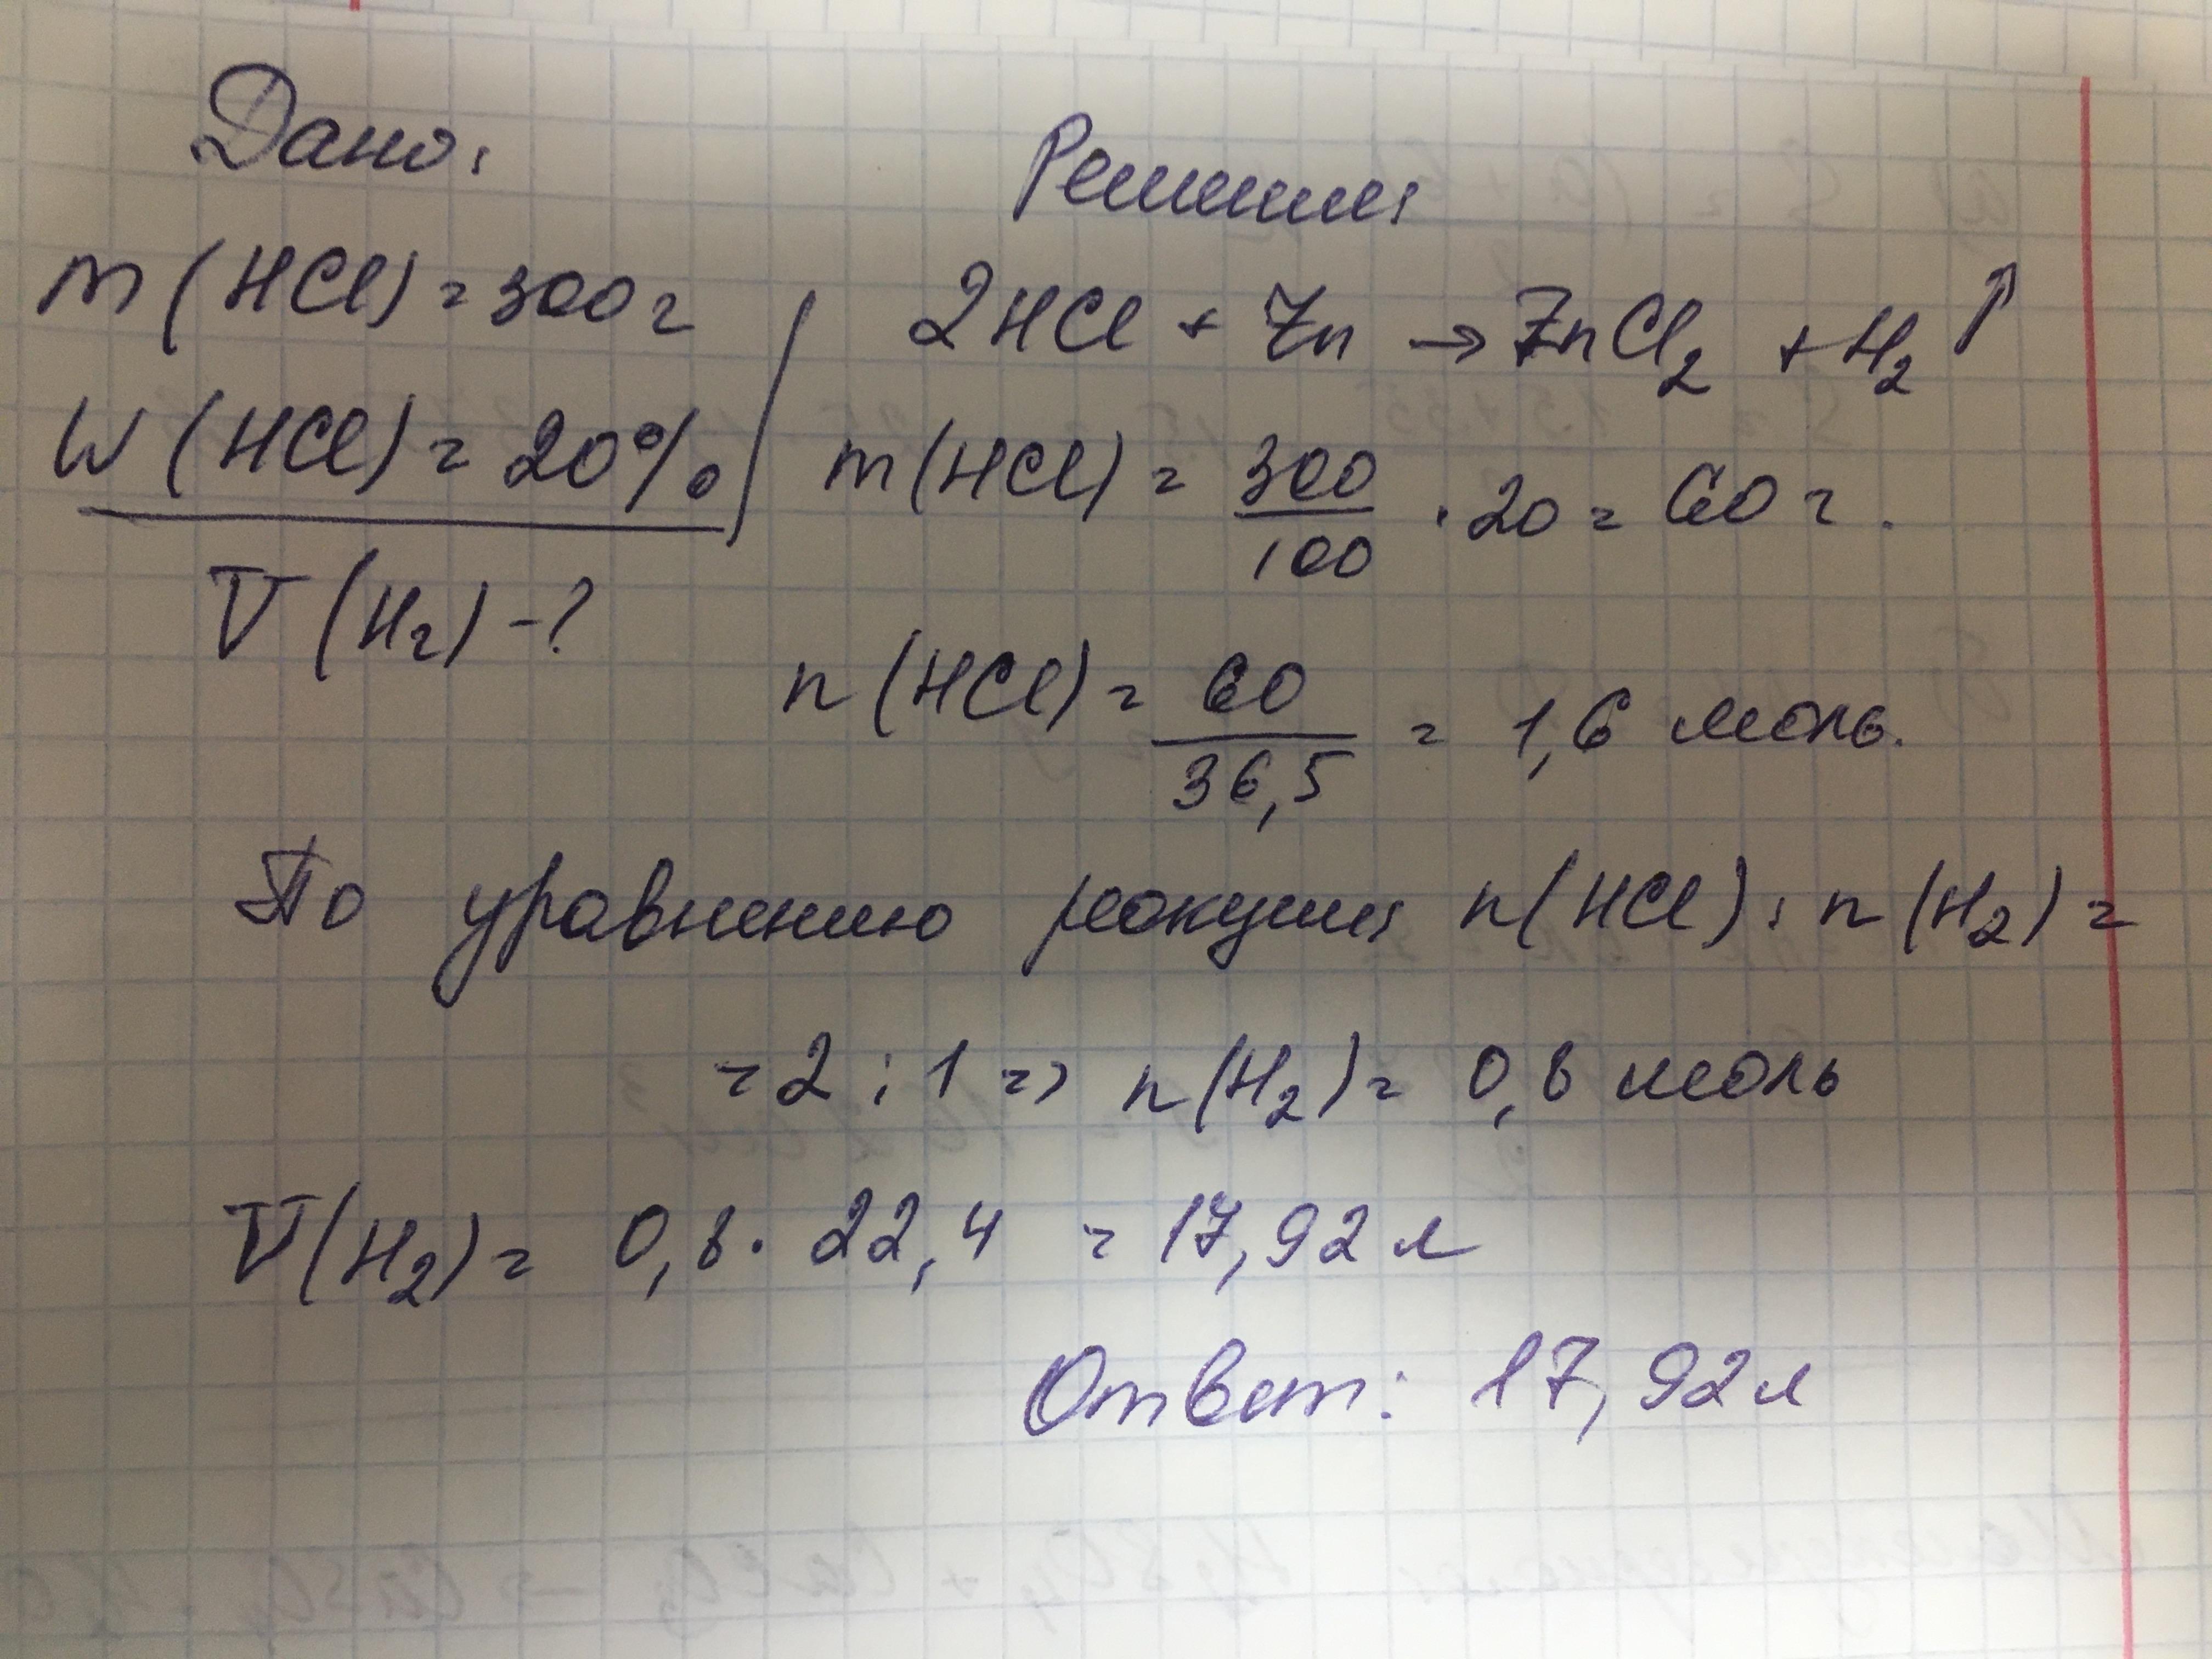 Дано:
m (HCl) = 300 г
W (HCl) = 20%
V (H2) - ?
Решение:
2HCl + Zn → ZnCl2 + H2 ↑
m (HCl) = 300/100 · 20 = 60 г.
n (HCl) = 60/36,5 = 1,6 моль.
По уравнению реакции n (HCl) : n (H2) =
= 2 : 1 => n (H2) = 0,8 моль
V (H2) = 0,8 · 22,4 = 17,92 л
Ответ: 17,92 л